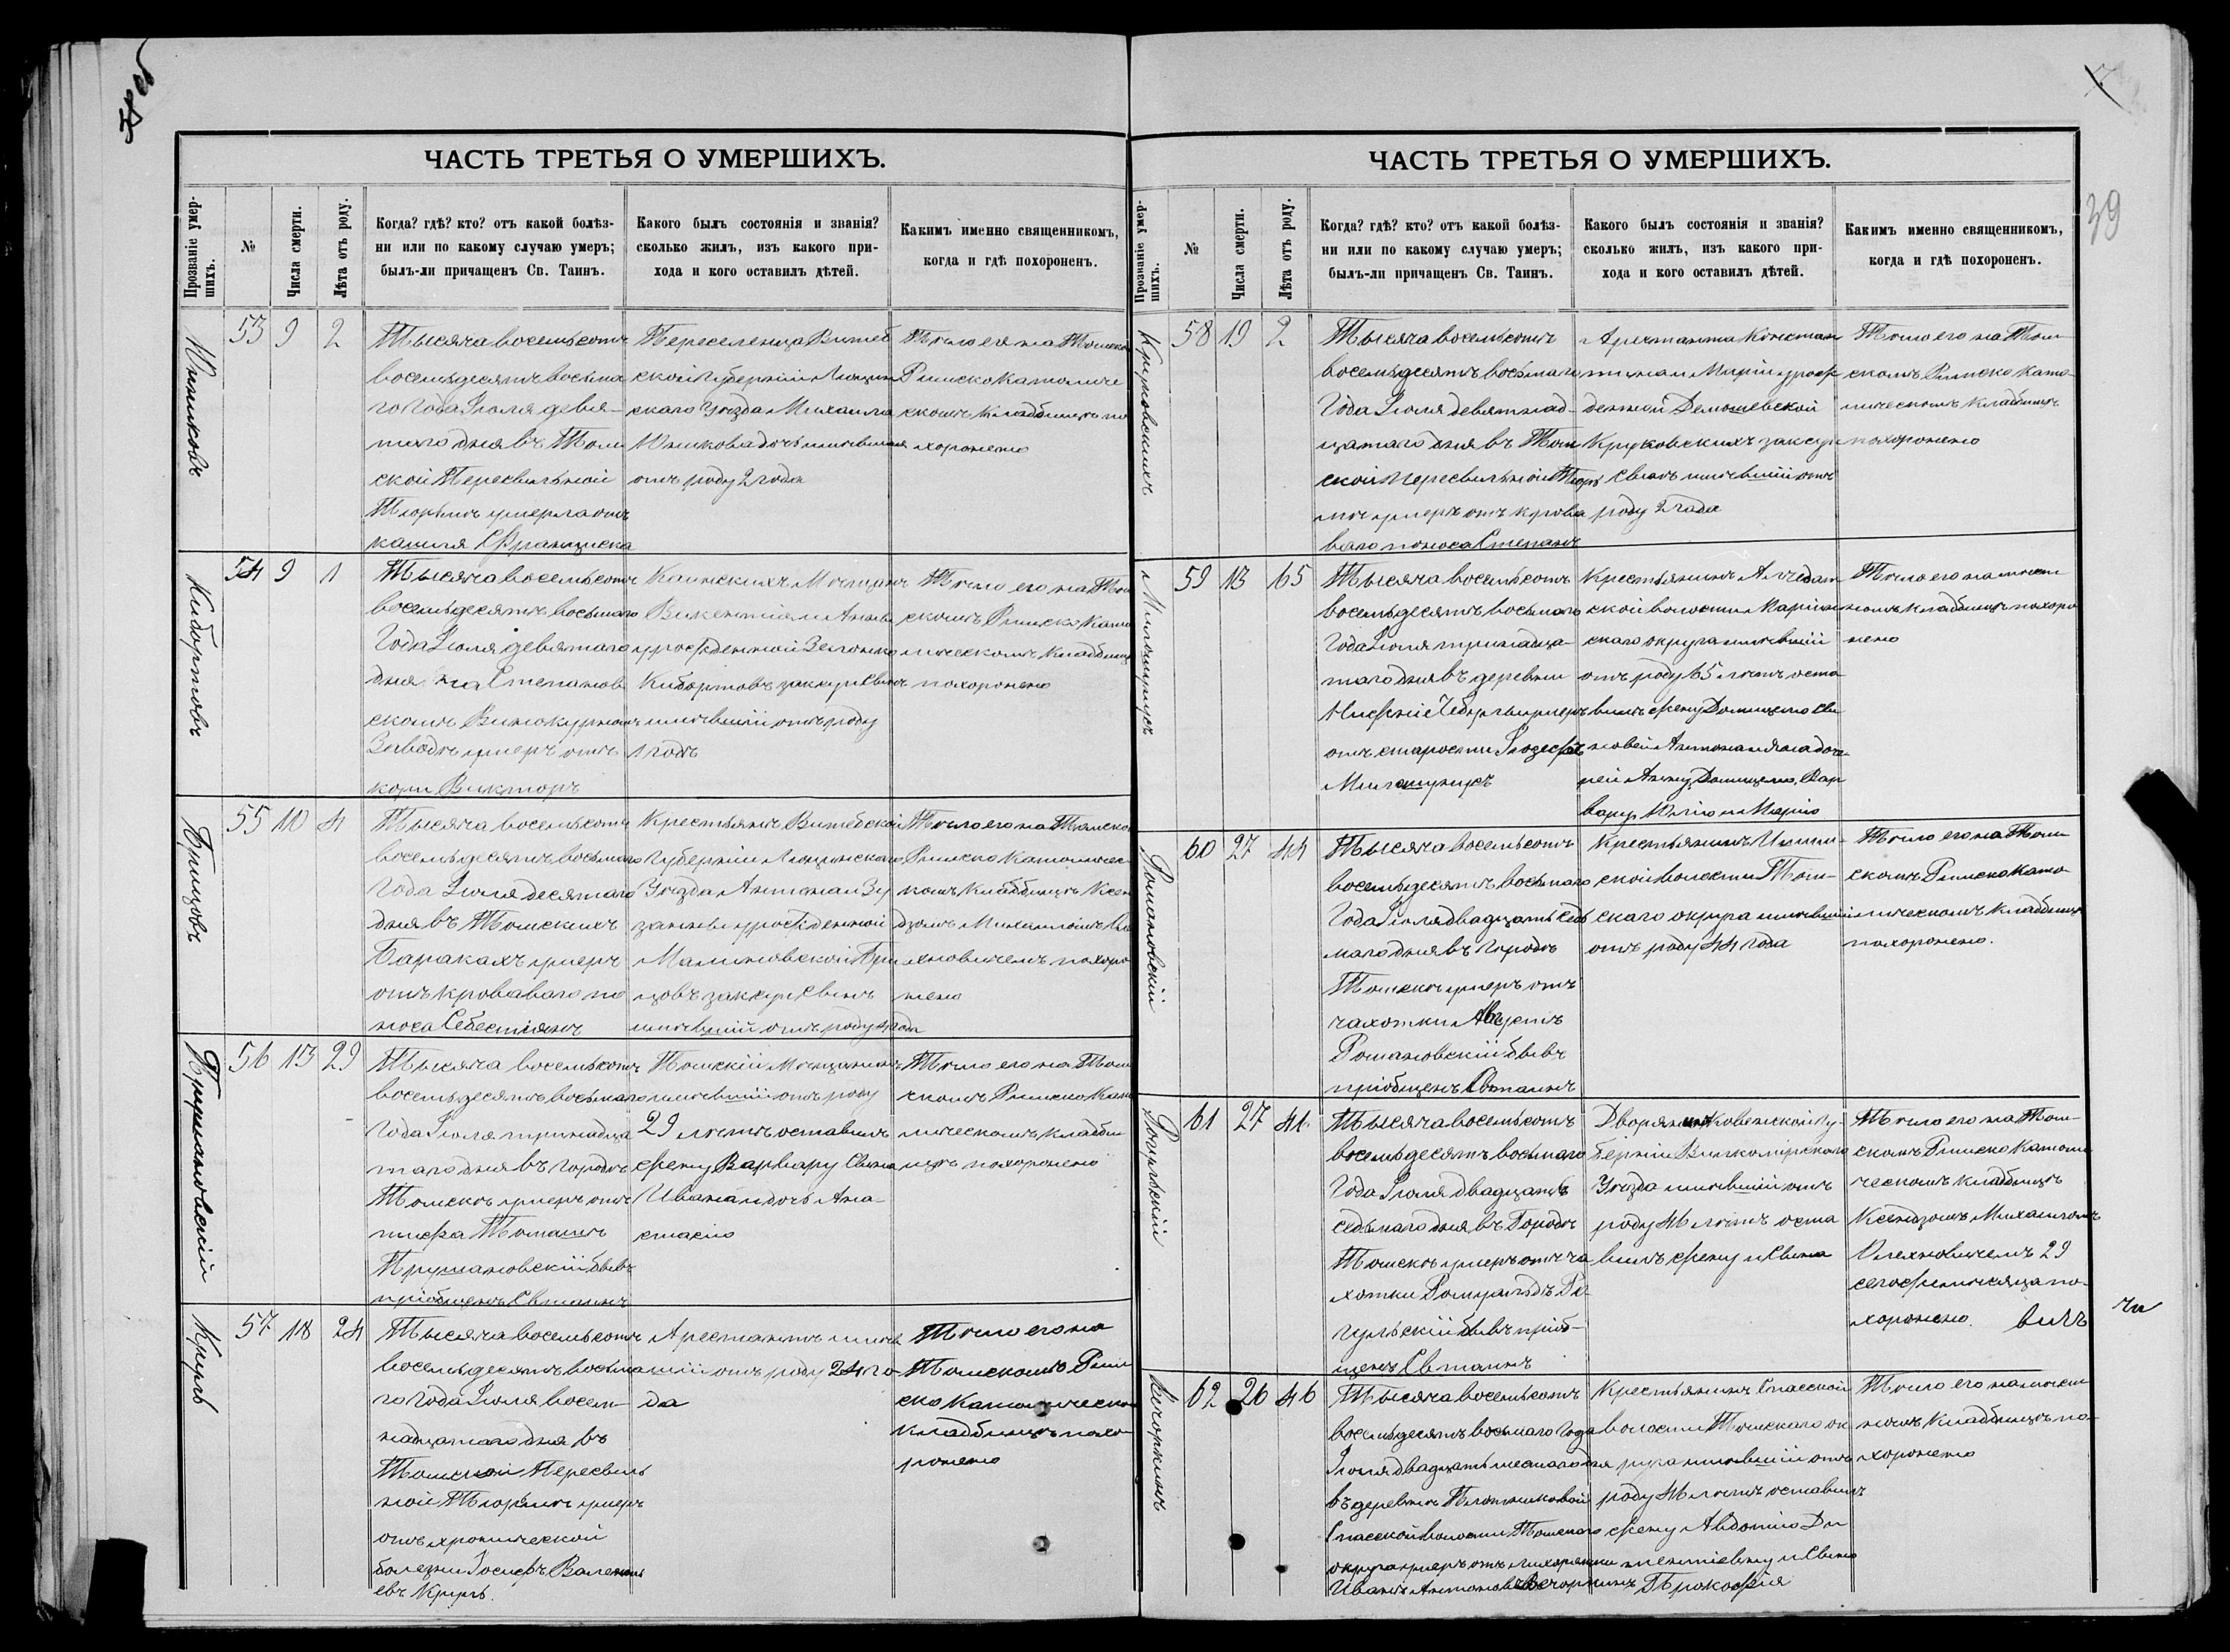 38 об
ЧАСТЬ ТРЕТЬЯ О УМЕРШИХЪ.
Прозваніе умер-
шихъ.
№
Числа смерти.
Лѣта отъ роду.
Когда? гдѣ? кто? отъ какой болѣз-
ни или по какому случаю умеръ;
былъ-ли причащенъ Св. Таинъ.
Какого былъ состоянія и званія?
сколько жилъ, изъ какого при-
хода и кого оставилъ дѣтей.
Какимъ именно священникомъ,
когда и гдѣ похороненъ.
Юшковъ
53 9 2
Тысяча восемьсотъ
восемьдесятъ восьма
го Года Іюля девя-
таго дня въ Том
ской Пересыльной
Тюрьмѣ умерла отъ
кашля Франциска
Переселенца Витеб
ской Губерніи Люцин
скаго Уѣзда Михаила
Юшкова дочь имѣвшая
отъ роду 2 года
Тѣло ея на Томско
Римско Католиче
скомъ Кладбищѣ по
хоронено
Кибортовъ
54 9 1
Тысяча восемьсотъ
восемьдесятъ восьмаго
Года Іюля девятаго
дня на Степанов
скомъ Винокурномъ
Заводѣ умеръ отъ
кори Викторъ
Каинскихъ Мѣщанъ
Викентія и Анны
урожденной
Кибортовъ закон Сынъ
имѣвшій отъ роду
1 годъ
Тѣло его на Том
скомъ Римско Като
лическомъ Кладбищѣ
похоронено
Брицовъ
55 10 4
Тысяча восемьсотъ
восемьдесятъ восьмаго
Года Іюля десятаго
дня въ Томскихъ
Баракахъ умеръ
отъ кроваваго по
носа Себестіянъ
Крестьянъ Витебской
Губерніи Люцинскаго
Уѣзда Антона и Зу
занны урожденной
Малиновской Бри
цовъ закон Сынъ
имѣвшій отъ роду 4 года
Тѣло его на Томско
Римско Католичес
комъ Кладбищѣ Ксен
дзомъ Михаиломъ Ол
ехновичемъ похоро
нено
Прушановскій
56 13 29
Тысяча восемьсотъ
восемьдесятъ восьмаго
Года Іюля тринадца
таго дня въ Городѣ
Томскѣ умеръ отъ
тифа Томашъ
Прушановскій бывъ
пріобщенъ Св таинъ
Томскій Мѣщанинъ
имѣвшій отъ роду
29 лѣтъ оставилъ
жену Варвару Сына
Ивана и дочь Ана-
стасію
Тѣло его на Том
скомъ Римско Като
лическомъ Кладби
щѣ похоронено
Крулъ
57 18 24
Тысяча восемьсотъ
восемьдесятъ восьма
го Года Іюля восем-
надцатаго дня въ
Томской Пересыль
ной Тюрьмѣ умеръ
отъ хронической
болезни Іосифъ
евъ Крулъ.
Арестантъ имѣв
шій отъ роду 24 го
да
Тѣло его на
Томскомъ Рим
ско Католическо
Кладбищѣ похо
ронено
7
39
ЧАСТЬ ТРЕТЬЯ О УМЕРШИХЪ.
Прозваніе умер-
шихъ.
№
Числа смерти.
Лѣта отъ роду.
Когда? гдѣ? кто? отъ какой болѣз-
ни или по какому случаю умеръ;
былъ-ли причащенъ Св. Таинъ.
Какого былъ состоянія и званія?
сколько жилъ, изъ какого при-
хода и кого оставилъ дѣтей.
Какимъ именно священникомъ,
когда и гдѣ похороненъ.
Круковскихъ
58 19 2
Тысяча восемьсотъ
восемьдесятъ восьмаго
Года Іюля девятнад-
цатаго дня въ Том
ской Пересыльной Тюрь
мѣ умеръ отъ крова
ваго поноса Степанъ
Арестанта Констан
тина и Маріи урож
денной Демошевской
Круковскихъ закон
Сынъ имѣвшій отъ
роду 2 года
Тѣло его на Том
скомъ Римско Като-
лическомъ Кладбищѣ
похоронено
Милошунусъ
59 13 65
Тысяча восемьсотъ
восемьдесятъ восьмаго
Года Іюля тринадца-
таго дня въ деревни
умеръ
отъ старости Іозефъ
Милошунусъ
Крестьянинъ Алчедат
ской волости Маріин
скаго округа имѣвшій
отъ роду 65 лѣтъ оста
вилъ жену Доминцелю Сы
новей Антона и доче-
рей Анну, Доминцелю, Вар
вару, Юлію и Марію
Тѣло его на мѣст
номъ Кладбищѣ похоро
нено
Романовскій
60 27 44
Тысяча восемьсотъ
восемьдесятъ восьмаго
Года Іюля двадцать седь
маго дня въ Городѣ
Томскѣ умеръ отъ
чахотки Августъ
Романовскій бывъ
пріобщенъ Св таинъ
Крестьянинъ Ишим-
ской волости Том-
скаго округа имѣвшій
отъ роду 44 года
Тѣло его на Том
скомъ Римско Като
лическомъ Кладбищѣ
похоронено.
Рогульскій
61 27 41
Тысяча восемьсотъ
восемьдесятъ восьмаго
Года Іюля двадцать
седьмаго дня въ Городѣ
Томскѣ умеръ отъ ча
хотки Ромуальдъ Ро
гульскій бывъ пріоб-
щенъ Св таинъ
Дворянинъ Ковенской Гу-
берніи Вилкомірскаго
Уѣзда имѣвшій отъ
роду 41 лѣтъ оста
вилъ жену и Сына
Тѣло его на Том-
скомъ Римско Католи
ческомъ Кладбищѣ
Ксендзомъ Михаиломъ
Олехновичемъ 29
сего же мѣсяца по-
хоронено.
Вечоркинъ
62 26 46
Тысяча восемьсотъ
восемьдесятъ восьмаго Года
Іюля двадцать шестаго дня
въ деревни Плотниковой
Спасской волости Томскаго
округа умеръ отъ лихорадки
Иванъ Антоновъ Вечоркинъ
Крестьянинъ Спасской
волости Томскаго ок
руга имѣвшій отъ
роду 41 лѣтъ оставилъ
жену Авдотію Ди
ментіевну и Сына
Прокофія
Тѣло его на мѣст
номъ Кладбищѣ по-
хоронено